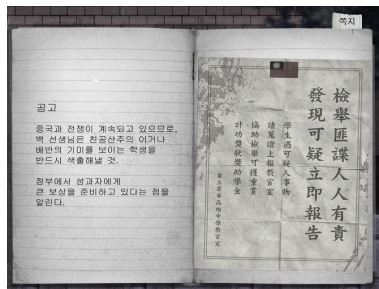 쪽지
공고
중국과 전쟁이 계속되고 있으므로,
백 선생님은 친공산주의 이거나
배반의 기미를 보이는 학생을
반드시 색출해낼 것.
정부에서 성과자에게
큰 보상을 준비하고 있다는 점을
알린다.
檢舉匪諜人人有責
發現可疑立即報告
學生遇可疑人事物
請蒐證上報教官室
協助檢舉可獲重賞
計功獎狀獎助學金
高級中學教官室